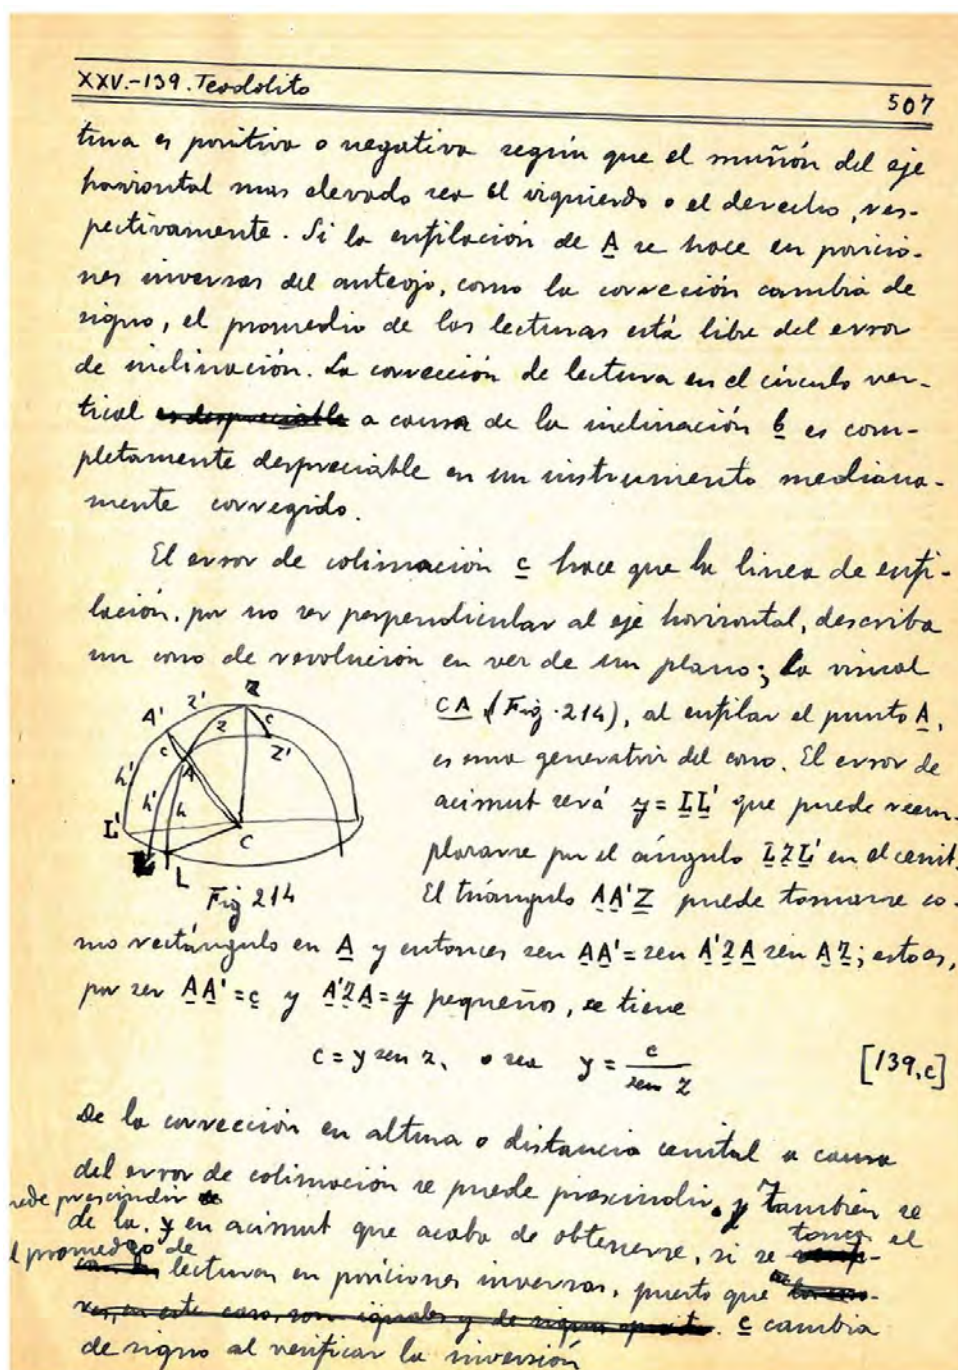 XXV.-139. Teodolito
507
tura es positiva o negativa según que el muñón del eje
horizontal mas elevado sea el izquierdo o el derecho, res-
pectivamente. Si la enfilación de A se hace en posicio-
nes inversas del anteojo, como la corrección cambia de
signo, el promedio de las lecturas está libre del error
de inclinación. La corrección de lectura en el círculo ver-
tical es despreciable a causa de la inclinación b es com-
pletamente despreciable en un instrumento mediana-
mente corregido.
El error de colimación c hace que la linea de enfi-
lación, por no ser perpendicular al eje horizontal, describa
un cono de revolución en vez de un plano; la visual
CA (Fig. 214), al enfilar el punto A,
es una generatriz del cono. El error de
acimut será y = LL' que puede reem-
plazarse por el ángulo LZL' en el cenit.
El triángulo AA'Z puede tomarse co-
mo rectángulo en A y entonces sen AA' = sen A'ZA sen AZ; esto es,
por ser AA' = c y A'ZA = y pequeños, se tiene
c = y sen z, o sea y = c / sen z [139,c]
De la corrección en altura o distancia cenital a causa
del error de colimación se puede prescindir, y también se
uede prescindir de
de la y en acimut que acaba de obtenerse, si se toma el
l promedio de
lecturas en posiciones inversas, puesto que
res, en este caso, son iguales y de signo opuesto. c cambia
de signo al verificar la inversión
Z
z'
A'
z
c
Z'
c
A
h'
h'
h
L'
C
L
Fig 214